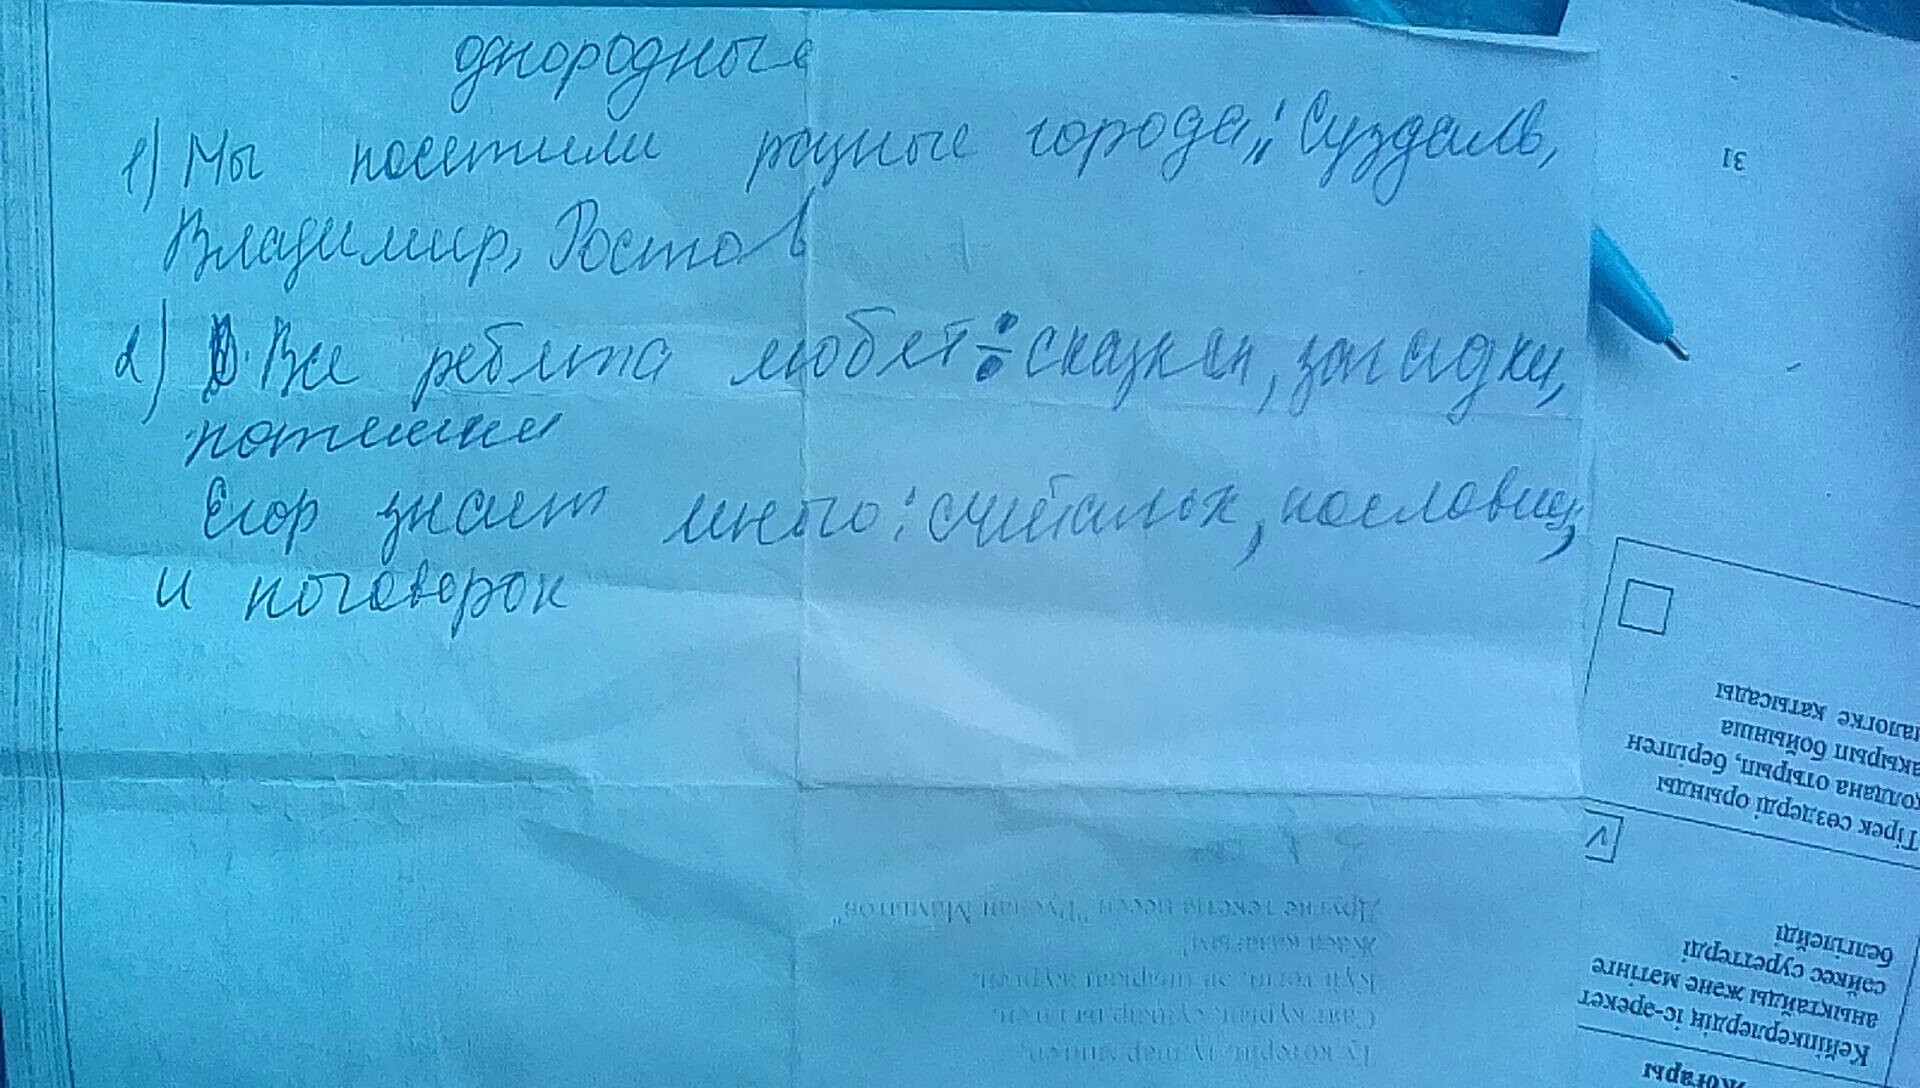 однородные
1) Мы посетили разные города,: Суздаль,
Владимир, Ростов
2) Все ребята любят: сказки, загадки,
потешки
Егор знает много: считалок, пословиц,
и поговорок
31
Жоғары
Кейіпкерлердің іс-әрекет
анықтайды және мәтінге
сәйкес суреттерді
белгілейді
V
Тірек сөздерді орынды
қолдана отырып, берілген
тақырып бойынша
диалогке қатысады